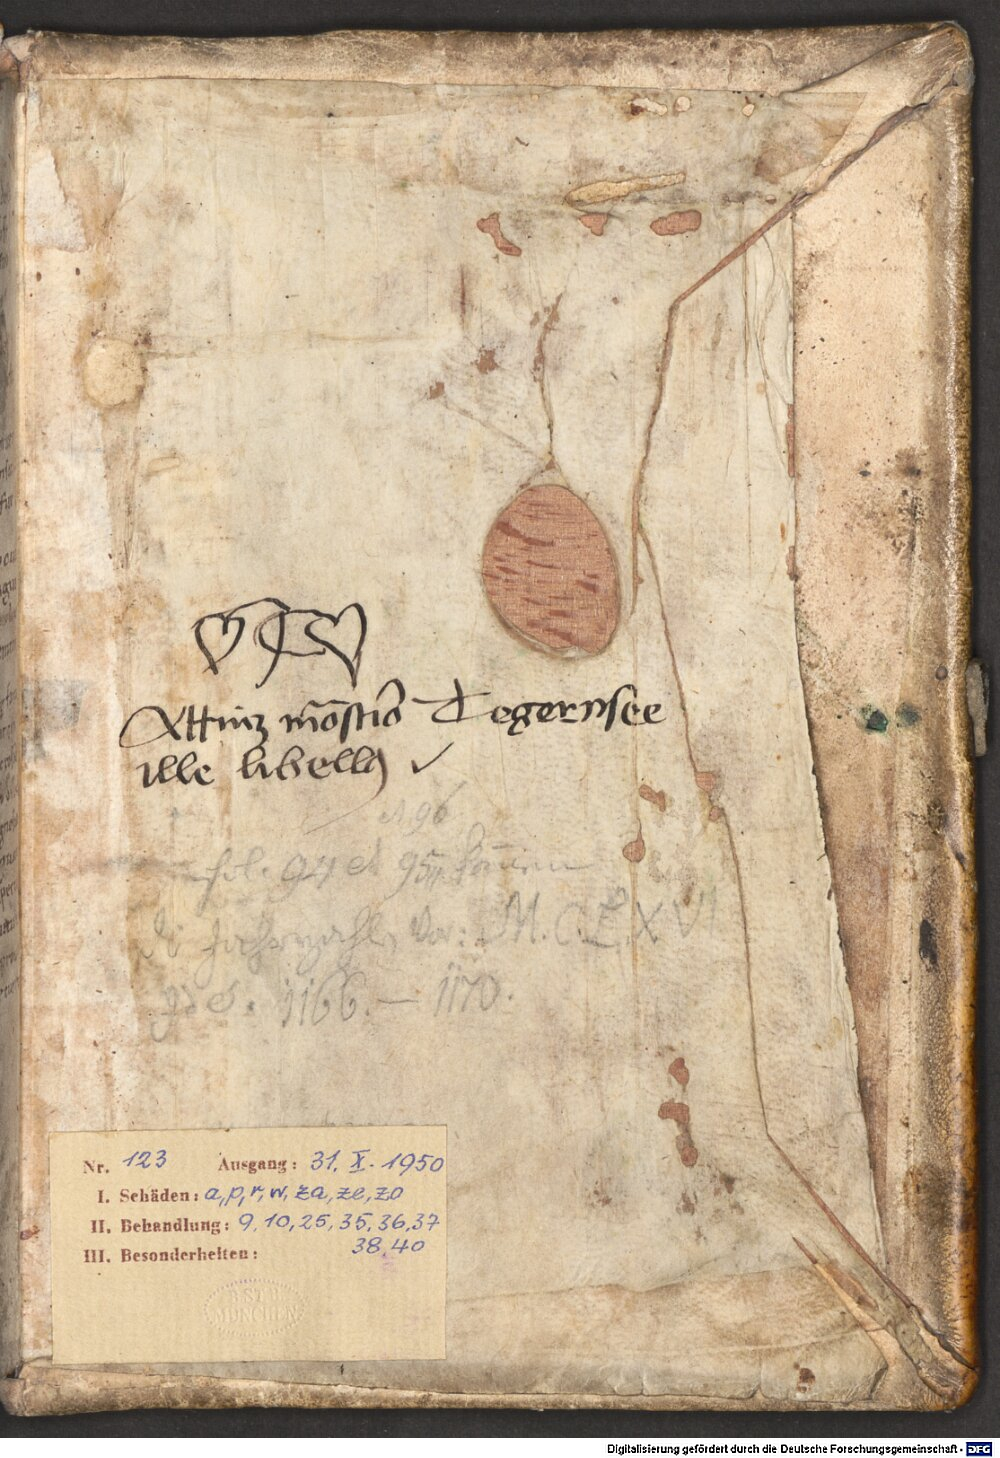 Attinz mōstio Tegernsee
ille libellꝰ
fol. 94 et 95
M.C.LXVI
1166. — 1170.
Nr. 123 Ausgang: 31. X. 1950
I. Schäden: a, p, r, w, za, ze, zo
II. Behandlung: 9, 10, 25, 35, 36, 37
38, 40
III. Besonderheiten:
MÜNCHEN
Digitalisierung gefördert durch die Deutsche Forschungsgemeinschaft - DFG